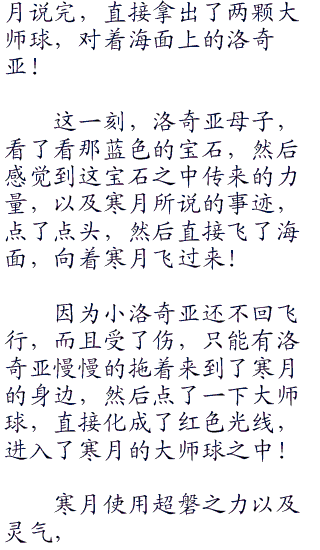 月说完，直接拿出了两颗大
师球，对着海面上的洛奇
亚！
这一刻，洛奇亚母子，
看了看那蓝色的宝石，然后
感觉到这宝石之中传来的力
量，以及寒月所说的事迹，
点了点头，然后直接飞了海
面，向着寒月飞过来！
因为小洛奇亚还不回飞
行，而且受了伤，只能有洛
奇亚慢慢的拖着来到了寒月
的身边，然后点了一下大师
球，直接化成了红色光线，
进入了寒月的大师球之中！
寒月使用超磐之力以及
灵气，